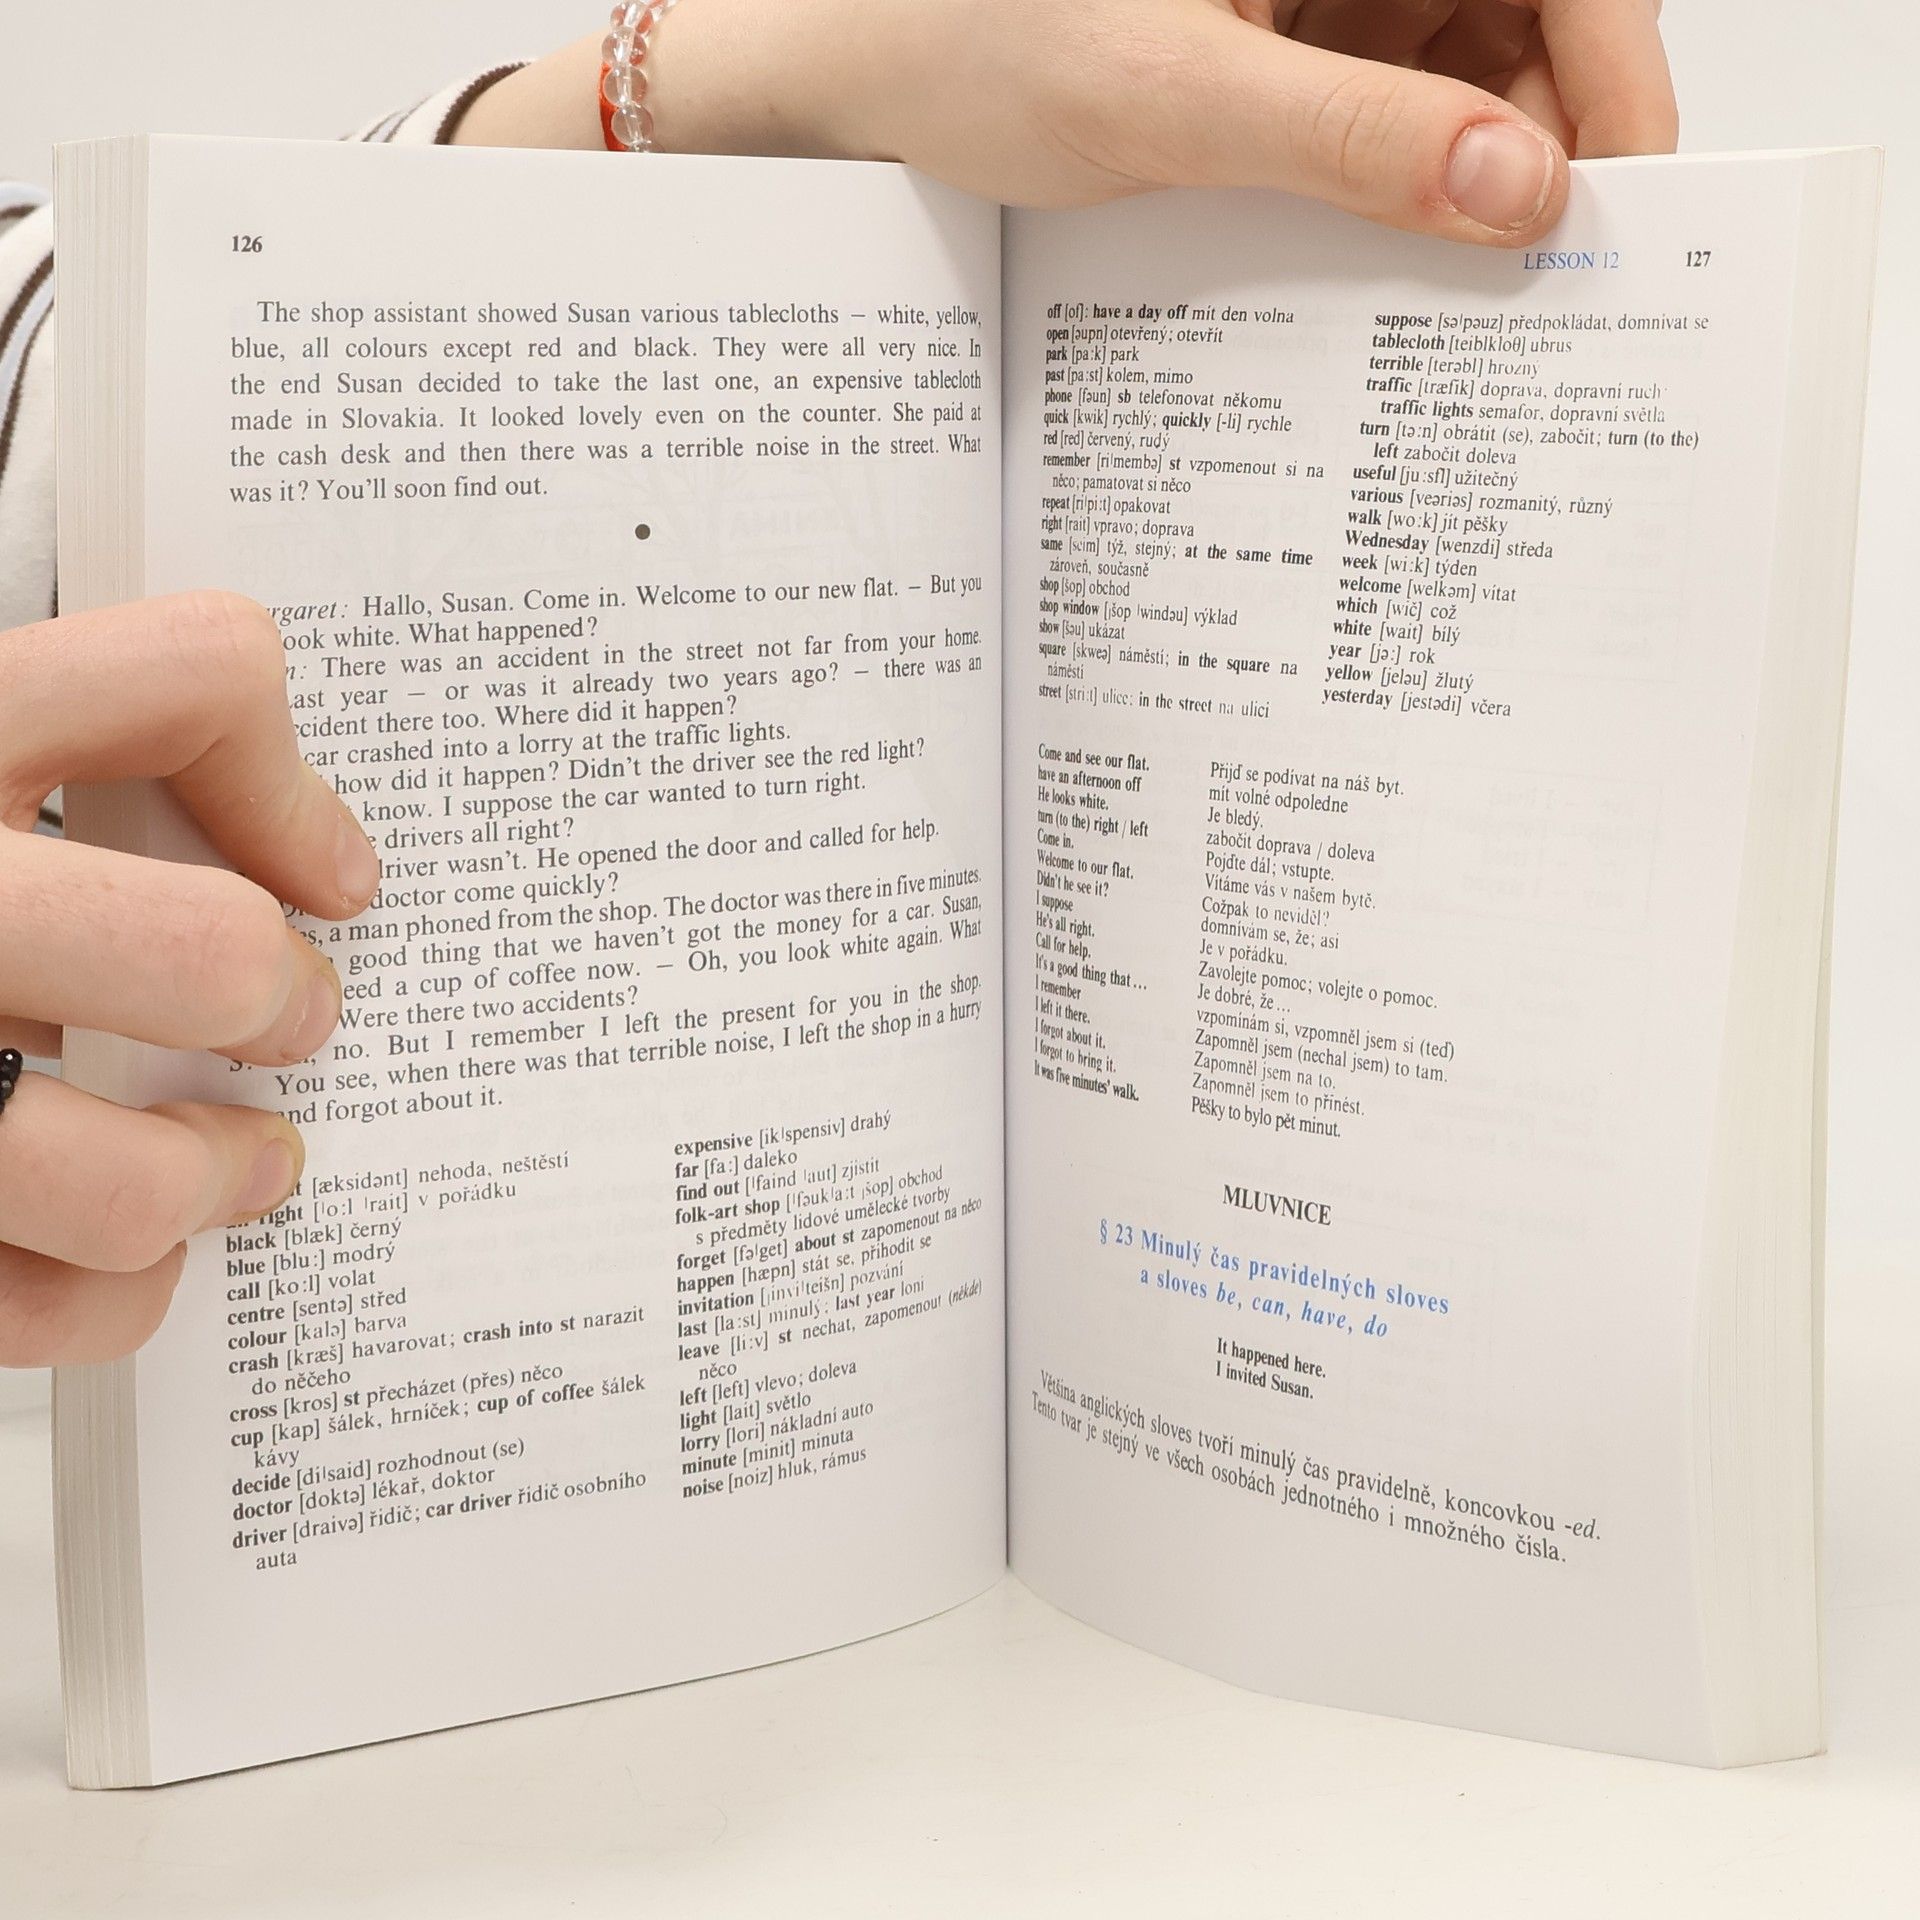 126
The shop assistant showed Susan various tablecloths – white, yellow,
blue, all colours except red and black. They were all very nice. In
the end Susan decided to take the last one, an expensive tablecloth
made in Slovakia. It looked lovely even on the counter. She paid at
the cash desk and then there was a terrible noise in the street. What
was it? You'll soon find out.
Hallo, Susan. Come in. Welcome to our new flat. – But you
white. What happened?
There was an accident in the street not far from your home.
year – or was it already two years ago? – there was an
there too. Where did it happen?
car crashed into a lorry at the traffic lights.
how did it happen? Didn't the driver see the red light?
know. I suppose the car wanted to turn right.
drivers all right?
wasn't. He opened the door and called for help.
doctor come quickly?
a man phoned from the shop. The doctor was there in five minutes.
good thing that we haven't got the money for a car. Susan,
a cup of coffee now. – Oh, you look white again. What
Were there two accidents?
no. But I remember I left the present for you in the shop.
You see, when there was that terrible noise, I left the shop in a hurry
forgot about it.
[æksidənt] nehoda, neštěstí
right [ˈo:l ˈrait] v pořádku
black [blæk] černý
blue [blu:] modrý
call [ko:l] volat
centre [sentə] střed
colour [kalə] barva
crash [kræš] havarovat; crash into st narazit
do něčeho
cross [kros] st přecházet (přes) něco
cup [kap] šálek, hrníček; cup of coffee šálek
kávy
decide [diˈsaid] rozhodnout (se)
doctor [doktə] lékař, doktor
driver [draivə] řidič; car driver řidič osobního
auta
expensive [ikˈspensiv] drahý
far [fa:] daleko
find out [ˈfaind ˈaut] zjistit
folk-art shop [ˈfəukˈa:t ˌšop] obchod
s předměty lidové umělecké tvorby
forget [fəˈget] about st zapomenout na něco
happen [hæpn] stát se, přihodit se
invitation [ˌinviˈteišn] pozvání
last [la:st] minulý; last year loni
leave [li:v] st nechat, zapomenout (někde)
něco
left [left] vlevo; doleva
light [lait] světlo
lorry [lori] nákladní auto
minute [minit] minuta
noise [noiz] hluk, rámus
LESSON 12 127
off [of]: have a day off mít den volna
open [əupn] otevřený; otevřít
park [pa:k] park
past [pa:st] kolem, mimo
phone [fəun] sb telefonovat někomu
quick [kwik] rychlý; quickly [-li] rychle
red [red] červený, rudý
remember [riˈmembə] st vzpomenout si na
něco; pamatovat si něco
repeat [riˈpi:t] opakovat
right [rait] vpravo; doprava
same [seim] týž, stejný; at the same time
zároveň, současně
shop [šop] obchod
shop window [ˌšop ˈwindəu] výklad
show [šəu] ukázat
square [skweə] náměstí; in the square na
náměstí
street [stri:t] ulice; in the street na ulici
suppose [səˈpəuz] předpokládat, domnívat se
tablecloth [teiblkloθ] ubrus
terrible [terəbl] hrozný
traffic [træfik] doprava, dopravní ruch
traffic lights semafor, dopravní světla
turn [tə:n] obrátit (se), zabočit; turn (to the)
left zabočit doleva
useful [ju:sfl] užitečný
various [veəriəs] rozmanitý, různý
walk [wo:k] jít pěšky
Wednesday [wenzdi] středa
week [wi:k] týden
welcome [welkəm] vítat
which [wič] což
white [wait] bílý
year [jə:] rok
yellow [jeləu] žlutý
yesterday [jestədi] včera
Come and see our flat. Přijď se podívat na náš byt.
have an afternoon off mít volné odpoledne
He looks white. Je bledý.
turn (to the) right / left zabočit doprava / doleva
Come in. Pojďte dál; vstupte.
Welcome to our flat. Vítáme vás v našem bytě.
Didn't he see it? Cožpak to neviděl?
I suppose domnívám se, že; asi
He's all right. Je v pořádku.
Call for help. Zavolejte pomoc; volejte o pomoc.
It's a good thing that ... Je dobré, že ...
I remember vzpomínám si, vzpomněl jsem si (teď)
I left it there. Zapomněl jsem (nechal jsem) to tam.
I forgot about it. Zapomněl jsem na to.
I forgot to bring it. Zapomněl jsem to přinést.
It was five minutes' walk. Pěšky to bylo pět minut.
MLUVNICE
§ 23 Minulý čas pravidelných sloves
a sloves be, can, have, do
It happened here.
I invited Susan.
Většina anglických sloves tvoří minulý čas pravidelně, koncovkou -ed.
Tento tvar je stejný ve všech osobách jednotného i množného čísla.